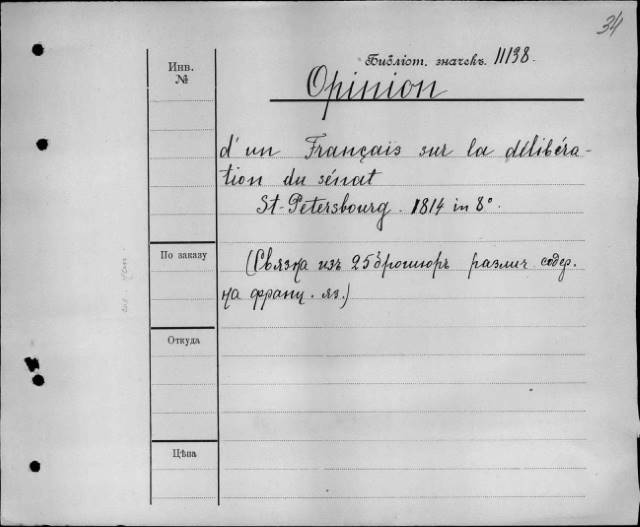 34
Инв.
№
Библіот. значекъ. 11138.
Opinion
d'un Français sur la délibéra-
tion du sénat
St-Petersbourg. 1814 in 8°.
По заказу
(Связка изъ 25 брошюръ различ. содер.
на франц. яз.)
Откуда
Цѣна